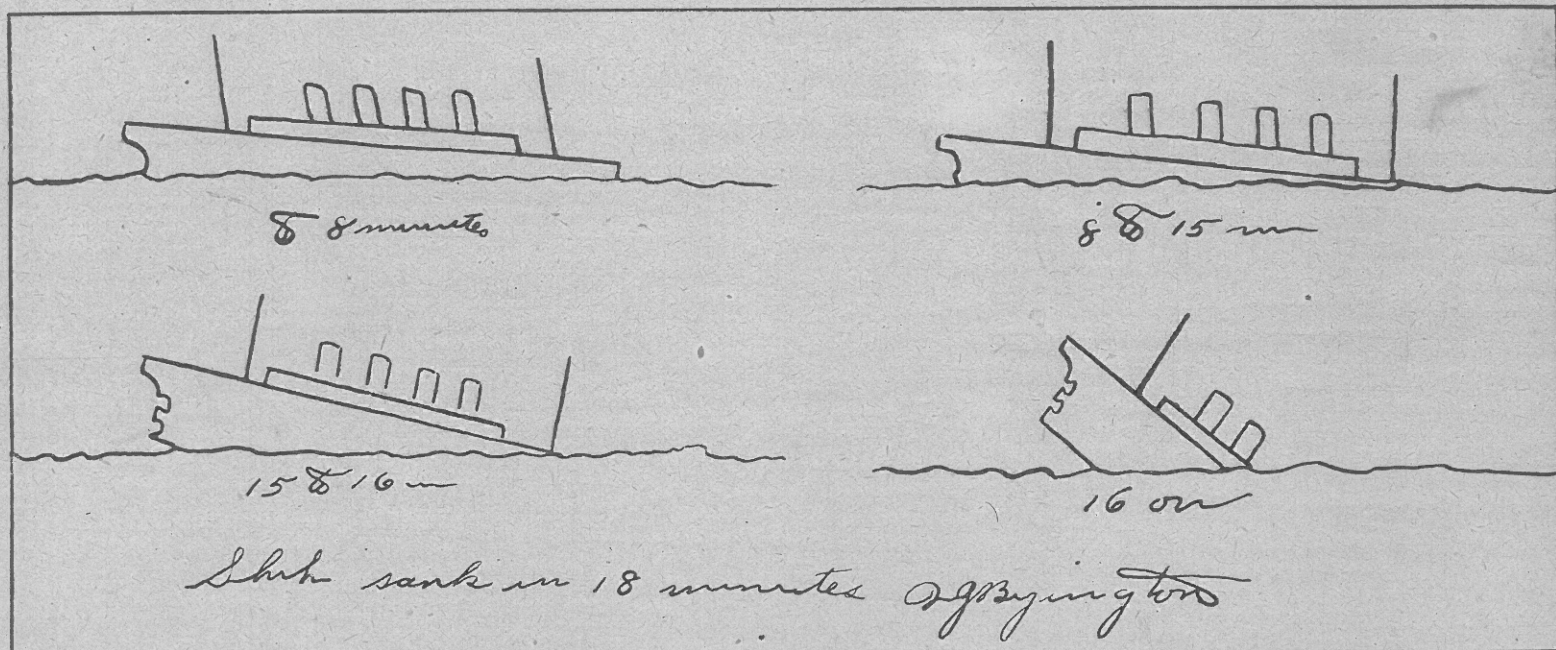 to 8 minutes
8 to 15 m
15 to 16 m
16 on
Ship sank in 18 minutes OgByington